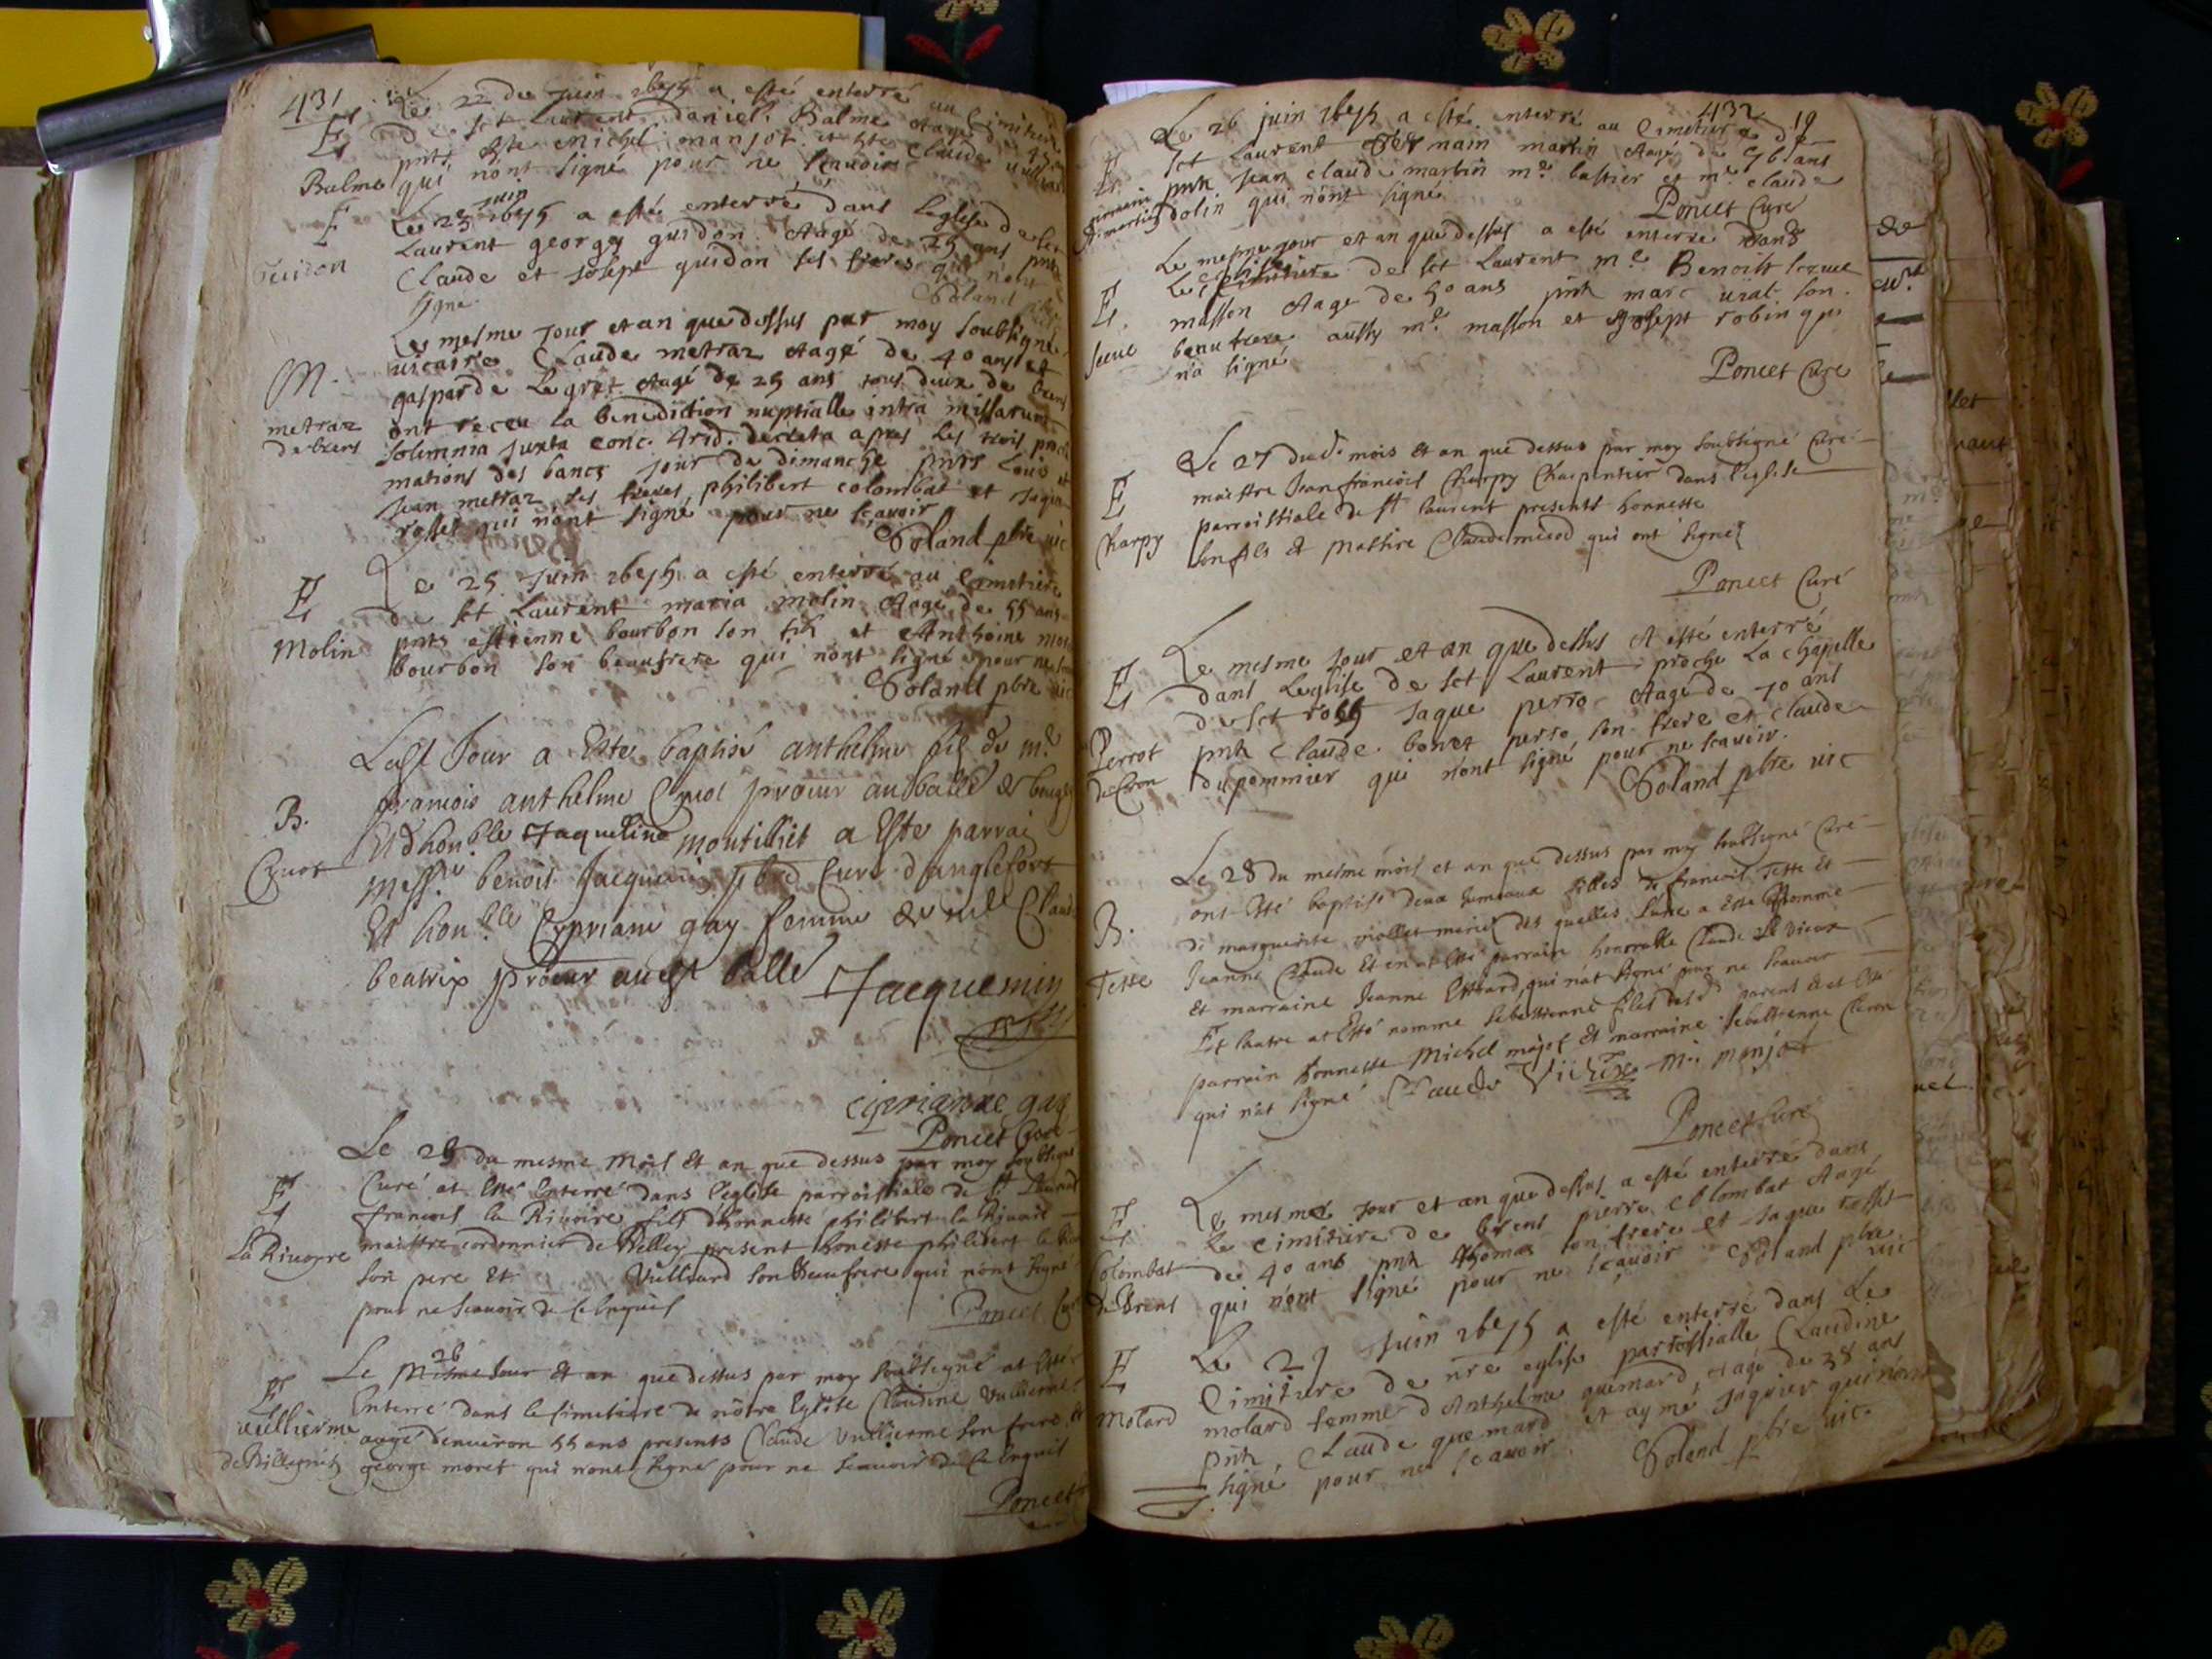 431
Le 22 de juin 1675 a esté enterré au Cimitiere
E de sct Laurent daniel Balme Aagé de 45
pnts hte michel manjot et hte Claude
Balme qui nont signé pour ne scauoir
juin
E Le 25 1675 a esté enterré dans Leglise de sct
Guidon Laurent george guidon Aagé de 25 ans pnts
Claude et Joseph guidon ses freres qui n'ont
signe Poland
Le mesme jour et an que dessus par moy soubsigné
M. uicaire Claude metraz Aagé de 40 ans et
gasparde Legret Aagé de 25 ans tous deux de brens
metraz ont receu la benediction nuptialle intra missarum
de brens solemnia juxta conc. Trid. decreta apres les trois procla
mations des bancs jour de dimanche pnts Louis et
Jean metraz ses freres, philibert colombat et Jaque
rosset qui n'ont signé pour ne scauoir
Poland pbre uic
E Le 25 Juin 1675 a esté enterré au Cimitiere
de sct Laurent maria molin Aagé de 55 ans
Molin pnts estienne bourbon son fils et Anthoine
bourbon son beaufrere qui nont signé pour ne
Poland pbre uic
Ledt Jour a Este baptisé anthelme fils de mr
francois anthelme Cyuot procur au balle de bugey
B. Et honble Jaqueline montillet a Este parrai
Cyuot messire benoist Jacquemin pbre Curé d'anglefort
Et honble Cypriane gay femme de mre Claude
beatrix procur audt balle
Jacquemin
ciprianne gay
Poncet Curé
Le 25 du mesme mois Et an que dessus par moy soubsigné
E Curé at Esté Enterré dans l'eglise parroissiale de St Laurent
francois la Riuoire fils d'honneste philibert la Riuoire
La Riuoyre maistre cordonnier de Belley present honeste philibert la
son pere Et Vulliard son Beaufrere qui n'ont signe
pour ne scauoir de ce Enquis
Poncet Curé
26
Le mesme Jour Et an que dessus par moy soubsigné at Esté
E Enterré dans le simetiere de nôtre Eglise Claudine Vullierme
uullierme aagé denuiron 55 ans presents Claude Vullierme son frere Et
de Billignin george moret qui n'ont signé pour ne scauoir de ce Enquis
Poncet
432
19
Le 26 juin 1675 a esté enterré au Cimitiere de
E sct Laurent germain martin Aagé de 76 ans
pnts Jean claude martin mre bastier et mre claude
dolin qui n'ont signé
Poncet Curé
Le mesme jour et an que dessus a esté enterré dans
Leglise
Le Cimitiere de sct Laurent mre Benoist seeue
E. masson Aagé de 50 ans pnts marc uiat son
seeue beaufrere aussy mre masson et Joseph robin qui
n'a signé
Poncet Curé
Le 27 dudt mois Et an que dessus par moy soubsigné Curé
E maistre Jean francois Charpy Charpentier dans l'eglise
parroissiale de St laurent presents honneste
Charpy son fils Et maistre Claude merod qui ont signez
Poncet Curé
Le mesme jour et an que dessus A esté enterré
E dans Leglise de sct Laurent proche La chapelle
de sct roch Jaque perro Aagé de 70 ans
Perrot pnts Claude bonet perro son frere et claude
du pommier qui n'ont signé pour ne scauoir
Poland pbre uic
Le 28 du mesme mois et an que dessus par moy soubsigné Curé
ont Esté baptisé deux Jumeaux filles de francois Teste Et
B. de marguerite violles mariez des quelles l'une a Este Nommé
Teste Jeanne Claude Et en at Esté parrain honorable Claude Le Vieux
Et marraine Jeanne Essuard, qui n'at signé pour ne scauoir
Et lautre at Esté nomme sebastienne filles desdt parens Et at Esté
parrain honneste Michel majot Et marraine sebastienne Cleron
qui n'at signé Claude Vieux Mi manjot
Poncet Curé
E. Le mesme jour et an que dessus a esté enterré dans
le cimitiere de brens pierre Colombat Aagé
Colombat de 40 ans pnts Thomas son frere et Jaque rosset
de Brens qui n'ont signé pour ne scauoir Poland pbre uic
Le 29 Juin 1675 a esté enterré dans Le
E Cimitiere de nre eglise parroissialle Claudine
Molard molard femme d'Anthelme quemard, Aagé de 38 ans
pnts, Claude quemard et aymé Jaquier qui n'ont
signé pour ne scauoir. Poland pbre uic.